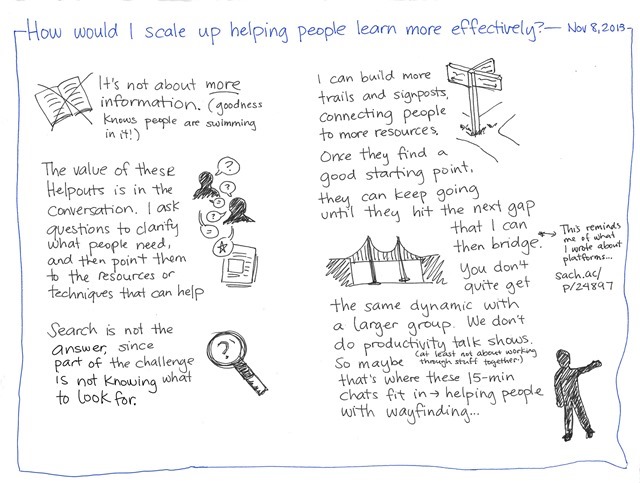 How would I scale up helping people learn more effectively? — Nov 8, 2013
It's not about more
information. (goodness
knows people are swimming
in it!)
The value of these
Helpouts is in the
conversation. I ask
questions to clarify
what people need,
and then point them
to the resources or
techniques that can help
Search is not the
answer, since
part of the challenge
is not knowing what
to look for.
I can build more
trails and signposts,
connecting people
to more resources.
Once they find a
good starting point,
they can keep going
until they hit the next gap
that I can
then bridge.
This reminds
me of what
I wrote about
platforms...
sach.ac/
p/24897
You don't
quite get
the same dynamic with
a larger group. We don't
do productivity talk shows.
(at least not about working
through stuff together.)
So maybe
that's where these 15-min
chats fit in → helping people
with wayfinding...